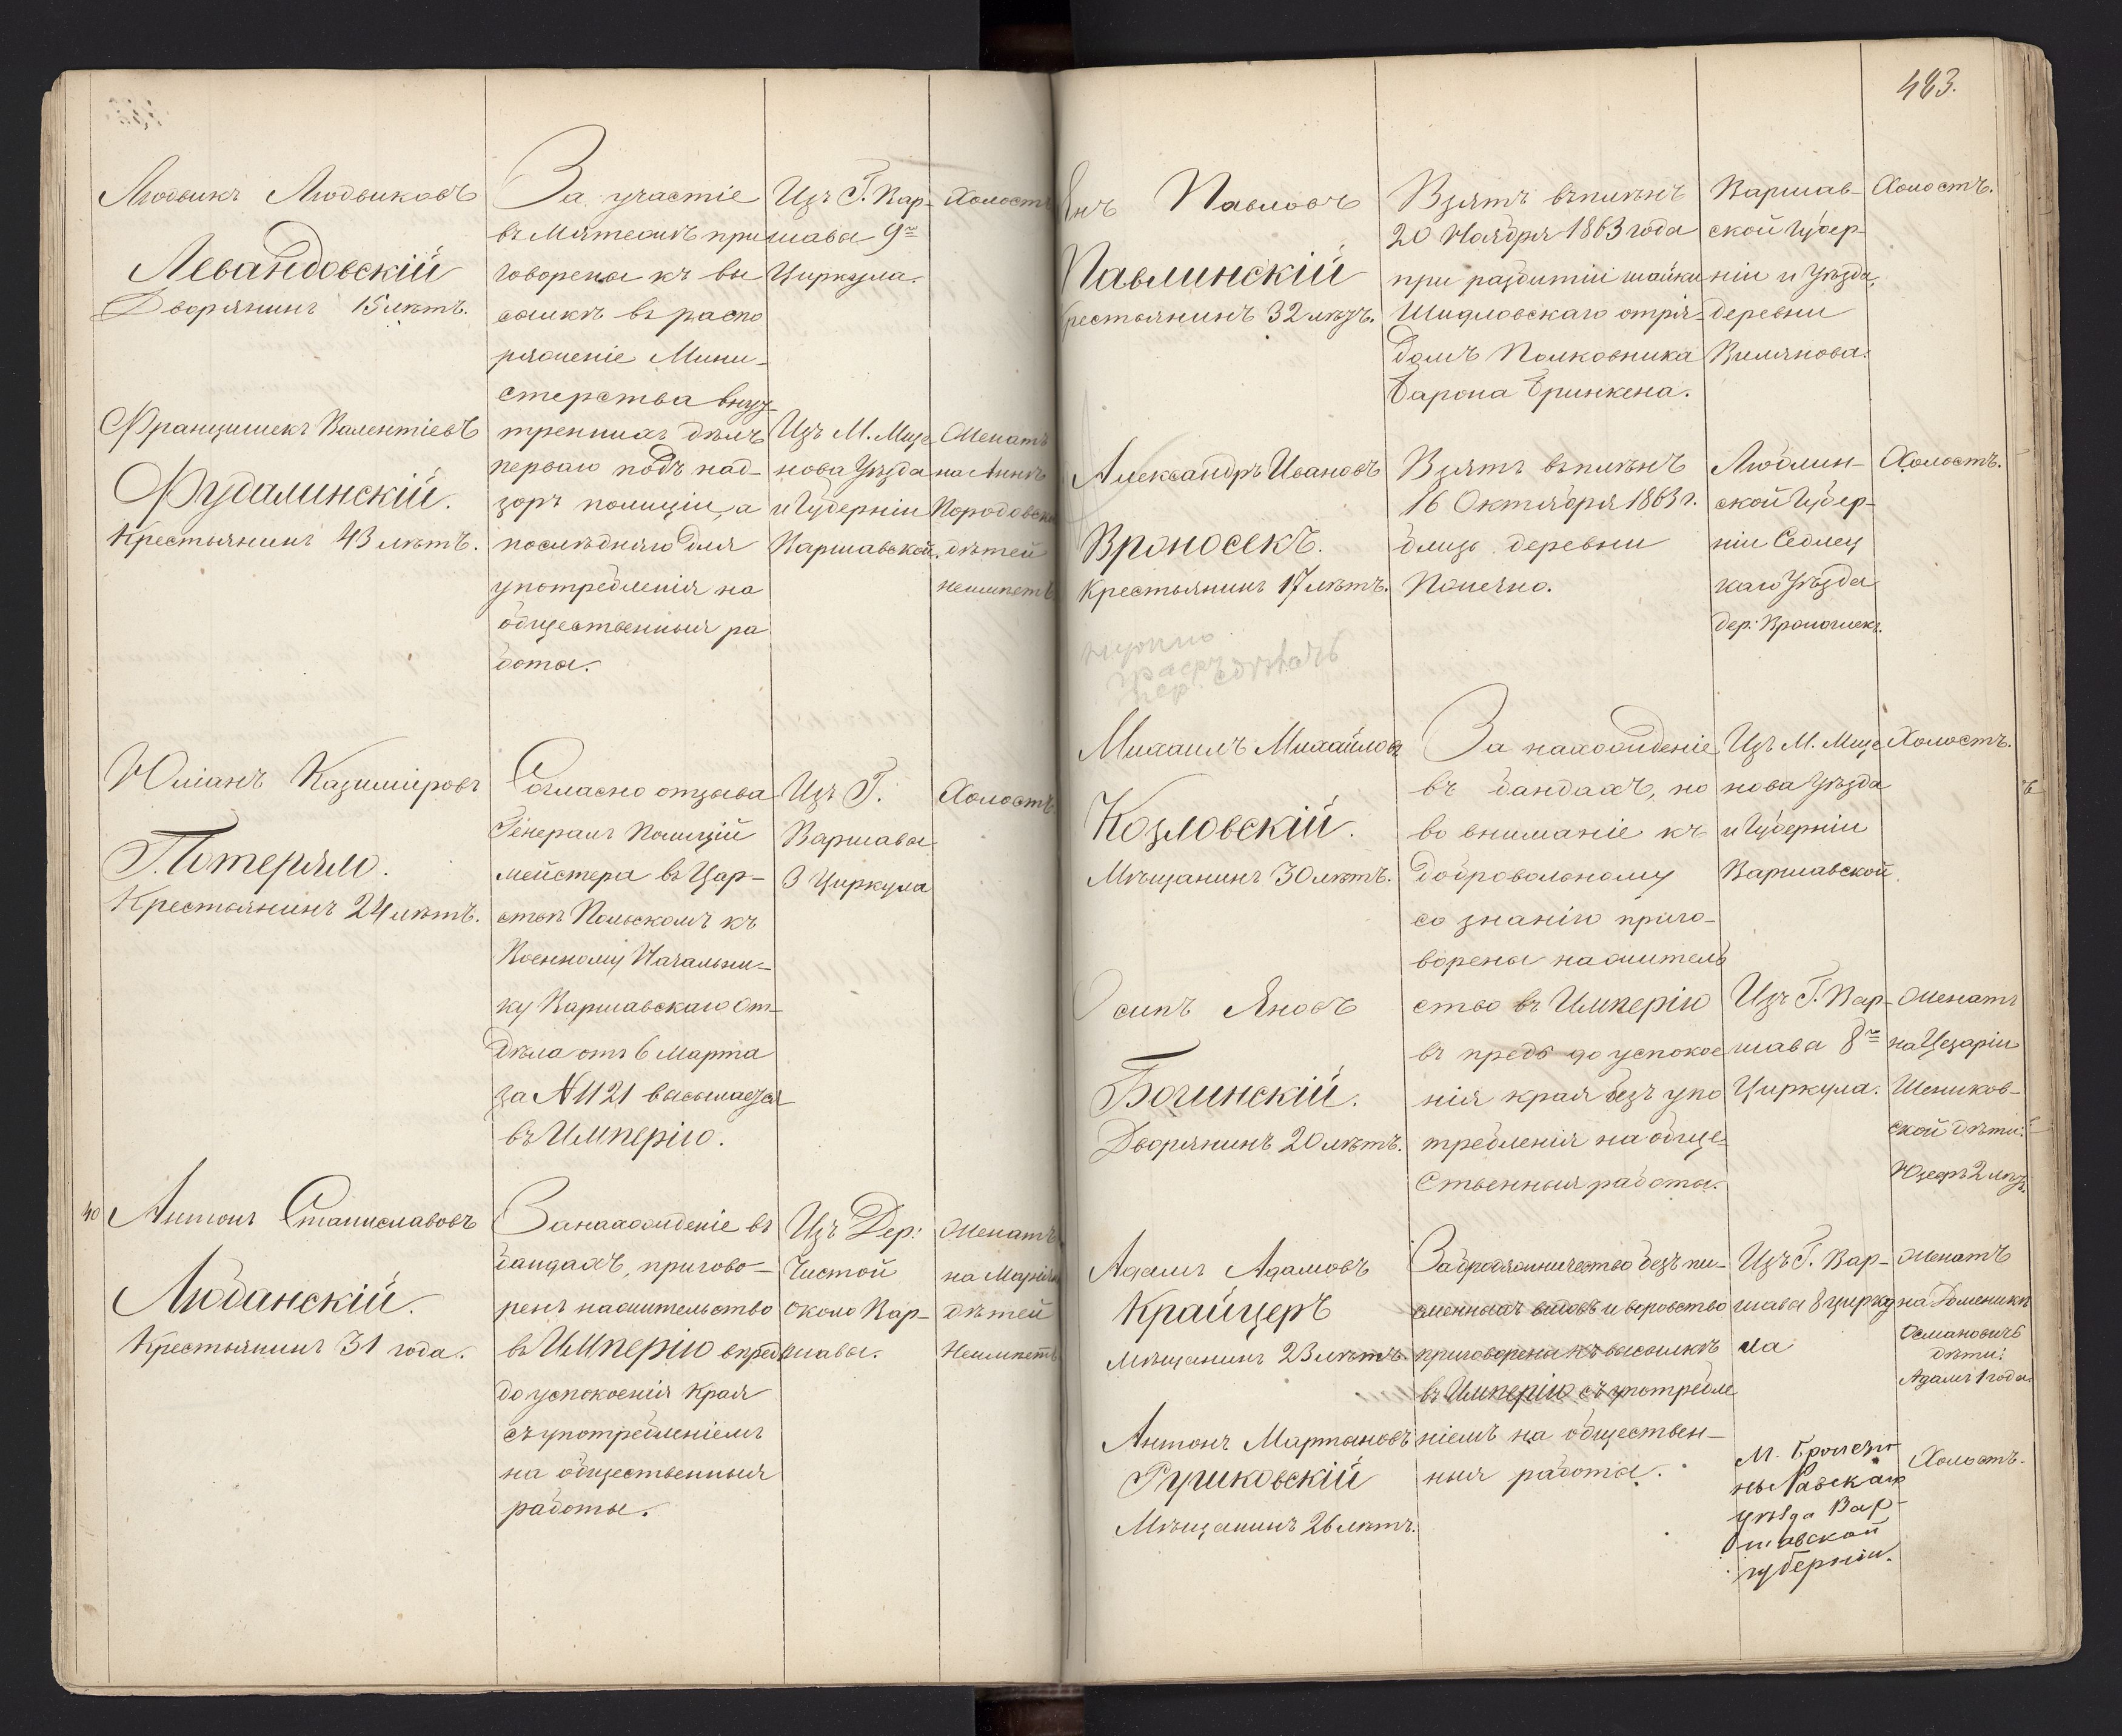 Людвикъ Людвиковъ
Левандовскій
Дворянинъ 15 лѣтъ.
За участіе
въ Мятежѣ при
говорены къ вы
сылкѣ въ распо
ряженіе Мини-
стерства внут
треннихъ дѣлъ
перваго подъ над-
зоръ полиціи, а
послѣдняго для
употребленія на
общественныя ра
боты.
Изъ Г. Вар-
шавы 9го
Циркула.
Холостъ
Францишекъ Валентіевъ
Фудалинскій.
Крестьянинъ 43 лѣтъ.
Изъ М. Мще
нова Уѣзда
и Губерніи
Варшавской.
Женатъ
на Аннѣ
дѣтей
неимѣетъ
Юліанъ Казиміровъ
Потеряло.
Крестьянинъ 24 лѣтъ.
Согласно отзыва
Генералъ Полицій
мейстера въ Цар-
ствѣ Польскомъ къ
Военному Начальни-
ку Варшавскаго От-
дѣла отъ 6 Марта
за № 1121 высылается
въ Имперію.
Изъ Г.
Варшавы
3 Циркула
Холостъ
40 Антонъ Станиславовъ
Любанскій.
Крестьянинъ 31 года.
За нахожденіе въ
бандахъ, пригово-
ренъ на жительство
въ Имперію впредь
до успокоенія Края
съ употребленіемъ
на общественныя
работы.
Изъ Дер:
Чистой
около Вар-
шавы.
Женатъ
на Маріи
дѣтей
Неимѣетъ
483.
Янъ Павловъ
Павлинскій
Крестьянинъ 32 лѣтъ.
Взятъ въ плѣнъ
20 Ноября 1863 года
при разбитіи шайки
Шидловскаго отря-
домъ Полковника
Барона Бринкена.
Варшав-
ской Губер-
ніи и Уѣзда,
деревни
Вилянова.
Холостъ.
Александръ Ивановъ
Вроносекъ.
Крестьянинъ 17 лѣтъ.
Взятъ въ плѣнъ
16 Октября 1863 г.
близь деревни
Холостъ.
Люблин-
ской Губер-
ніи Седлец
каго Уѣзда
нужно
Михаилъ Михайловъ
Козловскій.
Мѣщанинъ 30 лѣтъ.
За нахожденіе
въ бандахъ, но
во вниманіе къ
добровольному
сознанію приго-
ворены на житель
ство въ Имперію
въ предь до успокое
нія края безъ упо
требленія на обще-
ственныя работы.
Изъ М. Мще
нова Уѣзда
и Губерніи
Варшавской.
Холостъ.
Осипъ Яновъ
Богинскій.
Дворянинъ 20 лѣтъ.
Изъ Г. Вар-
шавы 8го
Циркула.
Женатъ
на Цезаріи
Шеников-
ской дѣти:
Юзефъ 2 лѣтъ.
Адамъ Адамовъ
Крайцеръ
Мѣщанинъ 23 лѣтъ.
За бродяжничество безъ пи-
сменныхъ видовъ и воровство
приговорены къ высылкѣ
въ Имперію, съ употребле
ніемъ на обществен-
ныя работы.
Изъ Г. Вар-
шавы 8 цирку
ла
Женатъ
на Доменикѣ
Османовичъ
дѣти:
Адамъ 1 года.
Антонъ Мартыновъ
Рушковскій
Мѣщанинъ 26 лѣтъ.
Равскаго
уѣзда Вар-
шавской
губерніи.
Холостъ.